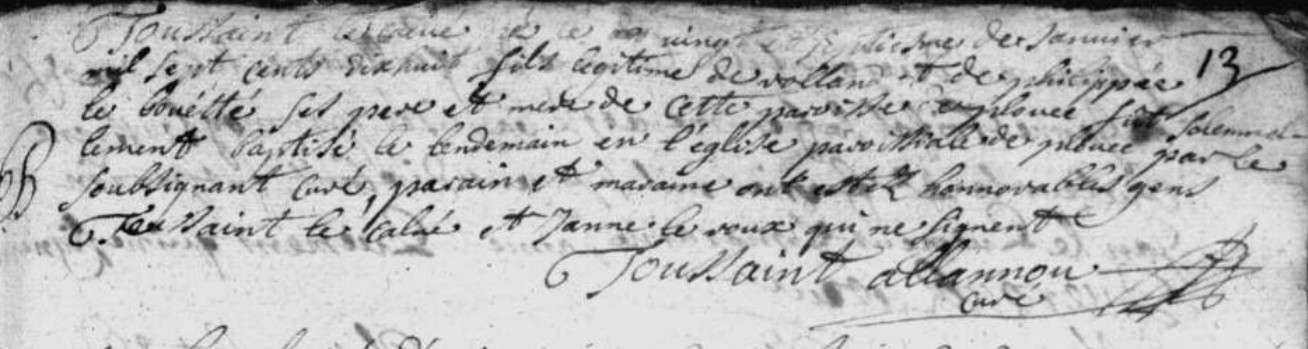 Toussaint né le vingt et septiesme de Janvier
mil sept cents dixhuit fils legitime de rolland et de philippée 13
le bouétté ses pere et mere de cette paroisse de plouec fut solemnel-
lement baptisé le lendemain en l'églize paroissialle de plouec par le
soubsignant curé, parain et maraine ont estez honnorables gens
Toussaint le calvé et Janne le roux qui ne signent
Toussaint allannou
curé